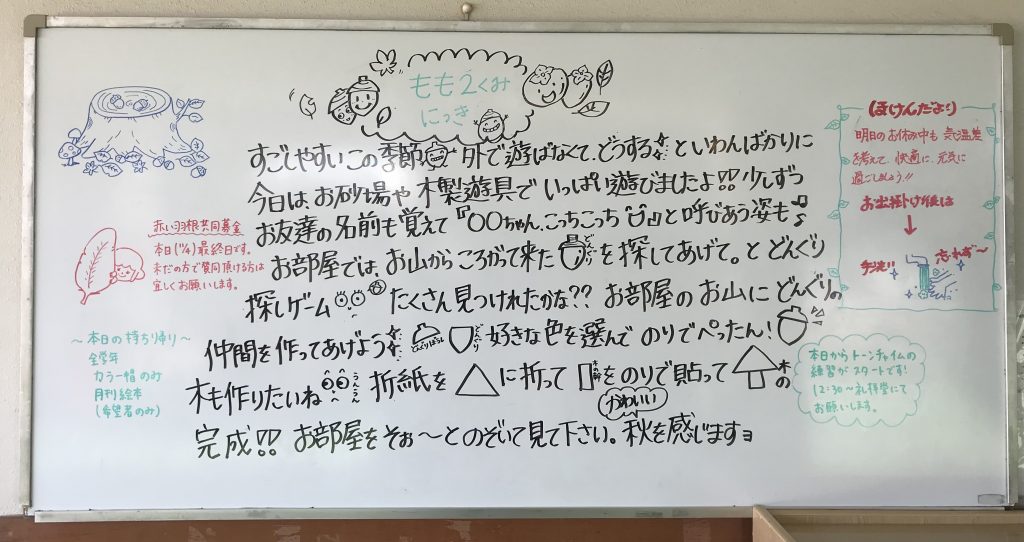 もも2くみ
にっき
すごしやすいこの季節 外で遊ばなくて、どうする といわんばかりに
今日は、お砂場や 木製遊具で いっぱい遊びましたよ!! 少しずつ
お友達の名前も覚えて『○○ちゃん、こっちこっち』と呼びあう姿も♪
お部屋では、お山から ころがって来た どんぐり を探してあげて。と どんぐり
探しゲーム たくさん見つけれたかな?? お部屋の お山に どんぐりの
仲間を作ってあげよう どんぐりぼうし どんぐり 好きな色を選んで のりでぺったん!
木も作りたいね うんうん 折紙を △に折って 木の幹をのりで貼って 木の
完成!! お部屋をそぉ〜とのぞいて見て下さい。かわいい秋を感じますョ
赤い羽根共同募金
本日(11/4)最終日です。
まだの方で賛同頂ける方は
宜しくお願いします。
〜本日の持ち帰り〜
全学年
カラー帽のみ
月刊絵本
(希望者のみ)
ほけんだより
明日のお休み中も 気温差
を考えて、快適に、元気に
過ごしましょう!!
お出掛け後は
手洗い
忘れず〜
本日からトーンチャイムの
練習がスタートです!
12:30〜礼拝堂にて
お願いします。